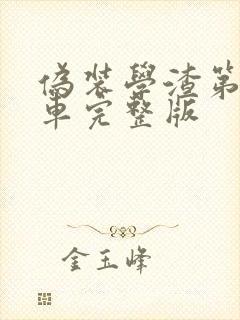 偽装學渣第
車完整版
金玉峰